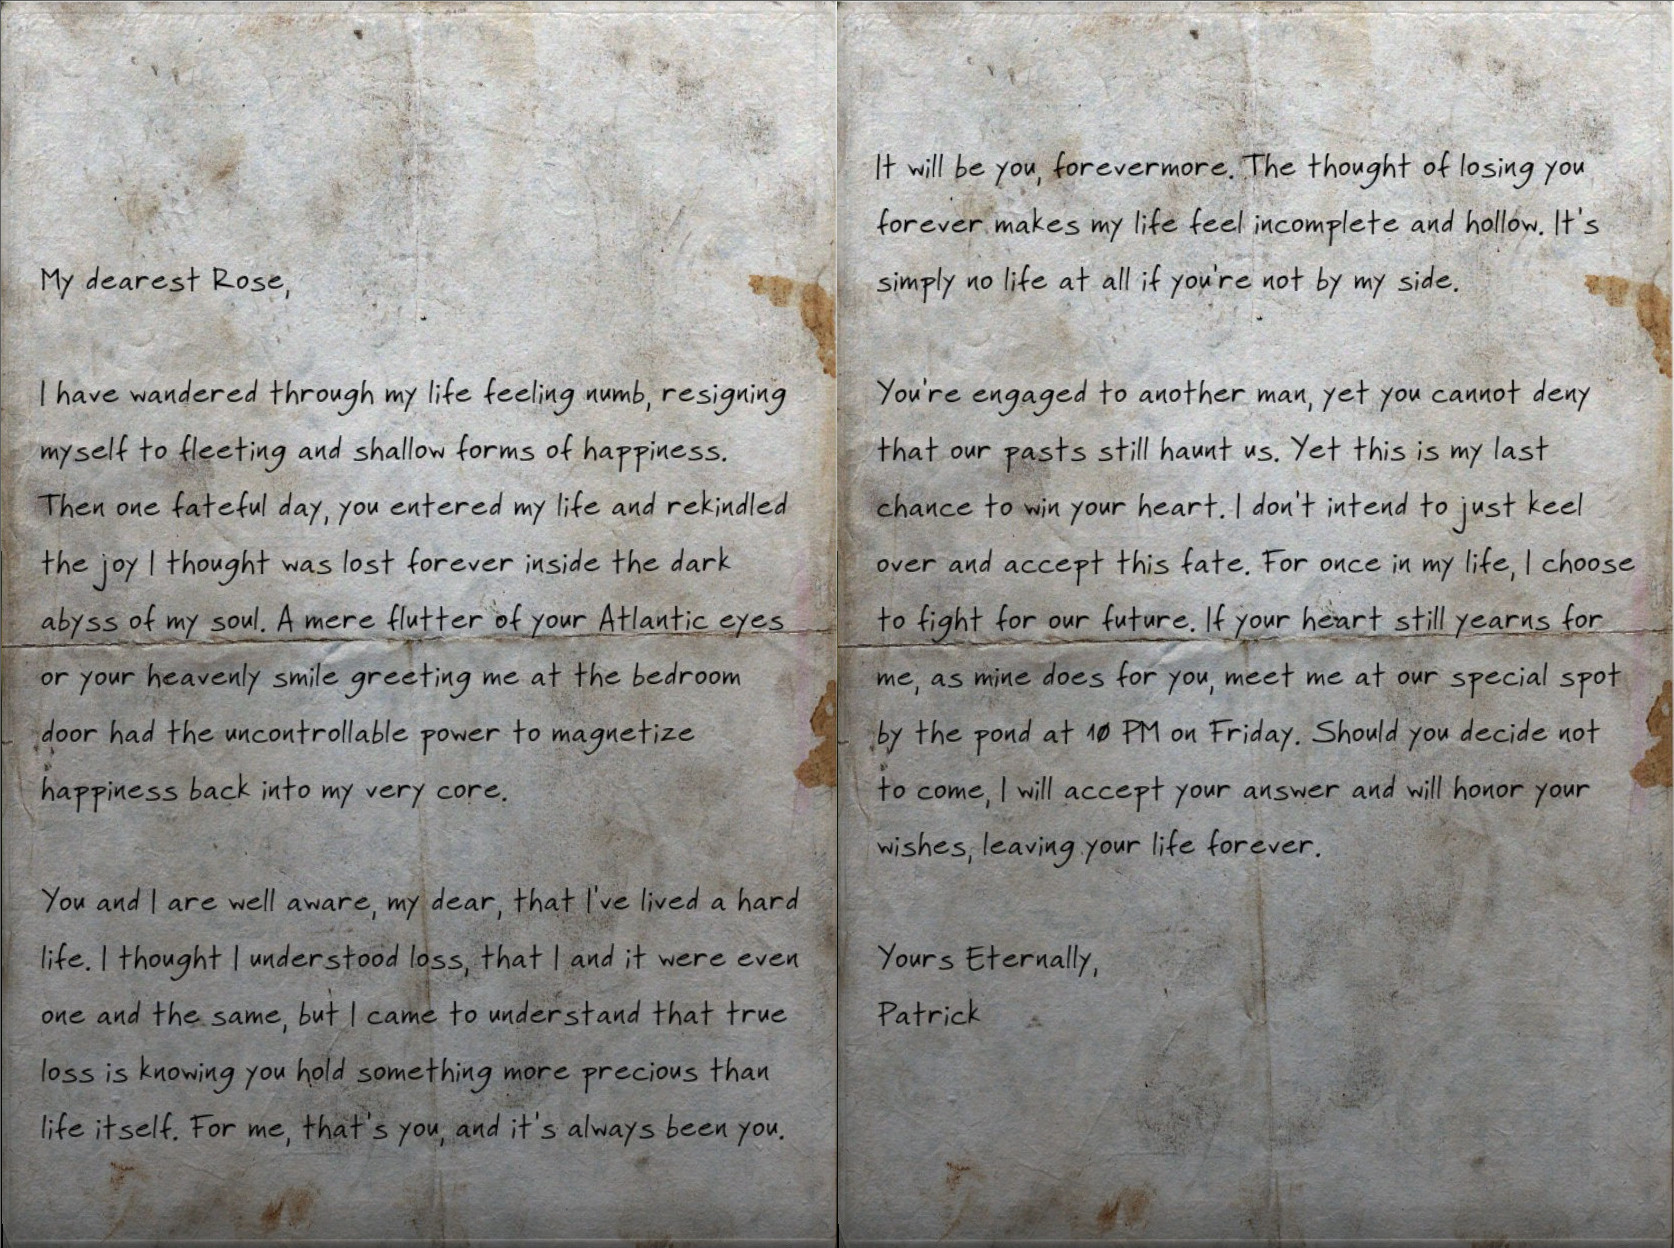 My dearest Rose,
I have wandered through my life feeling numb, resigning
myself to fleeting and shallow forms of happiness.
Then one fateful day, you entered my life and rekindled
the joy I thought was lost forever inside the dark
abyss of my soul. A mere flutter of your Atlantic eyes
or your heavenly smile greeting me at the bedroom
door had the uncontrollable power to magnetize
happiness back into my very core.
You and I are well aware, my dear, that I've lived a hard
life. I thought I understood loss, that I and it were even
one and the same, but I came to understand that true
loss is knowing you hold something more precious than
life itself. For me, that's you, and it's always been you.
It will be you, forevermore. The thought of losing you
forever makes my life feel incomplete and hollow. It's
simply no life at all if you're not by my side.
You're engaged to another man, yet you cannot deny
that our pasts still haunt us. Yet this is my last
chance to win your heart. I don't intend to just keel
over and accept this fate. For once in my life, I choose
to fight for our future. If your heart still yearns for
me, as mine does for you, meet me at our special spot
by the pond at 10 PM on Friday. Should you decide not
to come, I will accept your answer and will honor your
wishes, leaving your life forever.
Yours Eternally,
Patrick